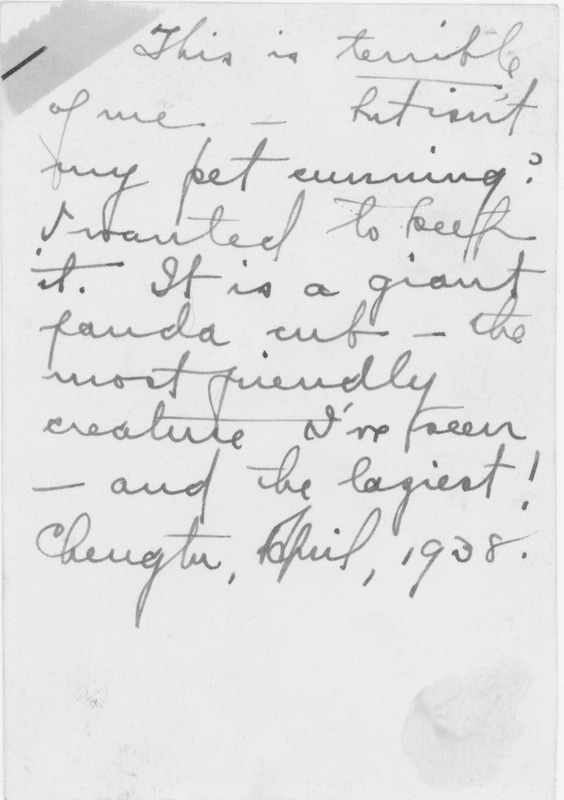 This is terrible
of me — but isn't
my pet cunning?
I wanted to keep
it. It is a giant
panda cub — the
most friendly
creature I've seen
— and the laziest!
Chengtu, April, 1938.